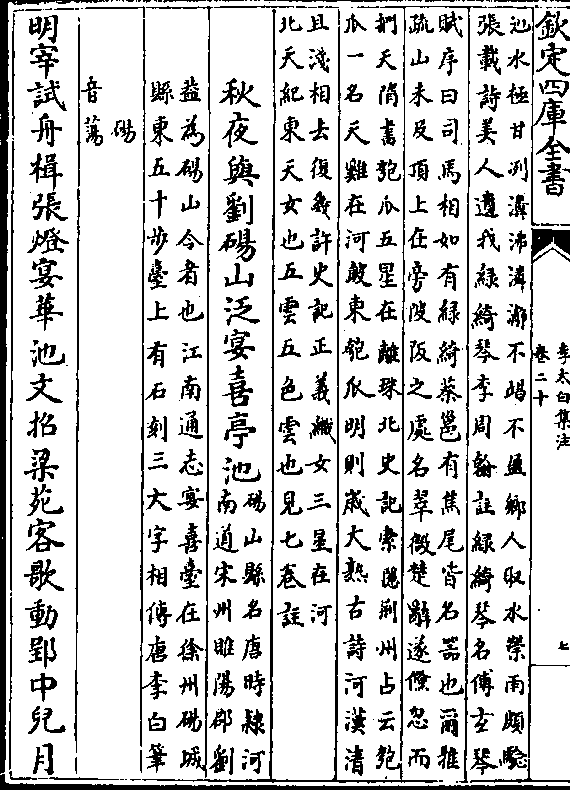 欽定四庫全書
李太白集注
卷二十
七
氿水極甘冽溝沸潾瀰不竭不溢鄉人取水禜雨頗騐
張載詩美人遺我綠綺琴李周翰註綠綺琴名傅玄琴
賦序曰司馬相如有綠綺蔡邕有焦尾皆名器也爾雅
疏山未及頂上在旁陂阪之處名翠微楚辭遂儵忽而
捫天隋書匏瓜五星在離珠北史記索隱荆州占云匏
瓜一名天雞在河鼓東匏瓜明則嵗大熟古詩河漢清
且淺相去復幾許史記正義織女三星在河
北天紀東天女也五雲五色雲也見七卷註
秋夜與劉碭山泛宴喜亭池
碭山縣名唐時隸河
南道宋州睢陽郡劉
葢為碭山令者也江南通志宴喜臺在徐州碭城
縣東五十步臺上有石刻三大字相傳唐李白筆
碭
音蕩
明宰試舟楫張燈宴華池文招梁苑客歌動郢中兒月